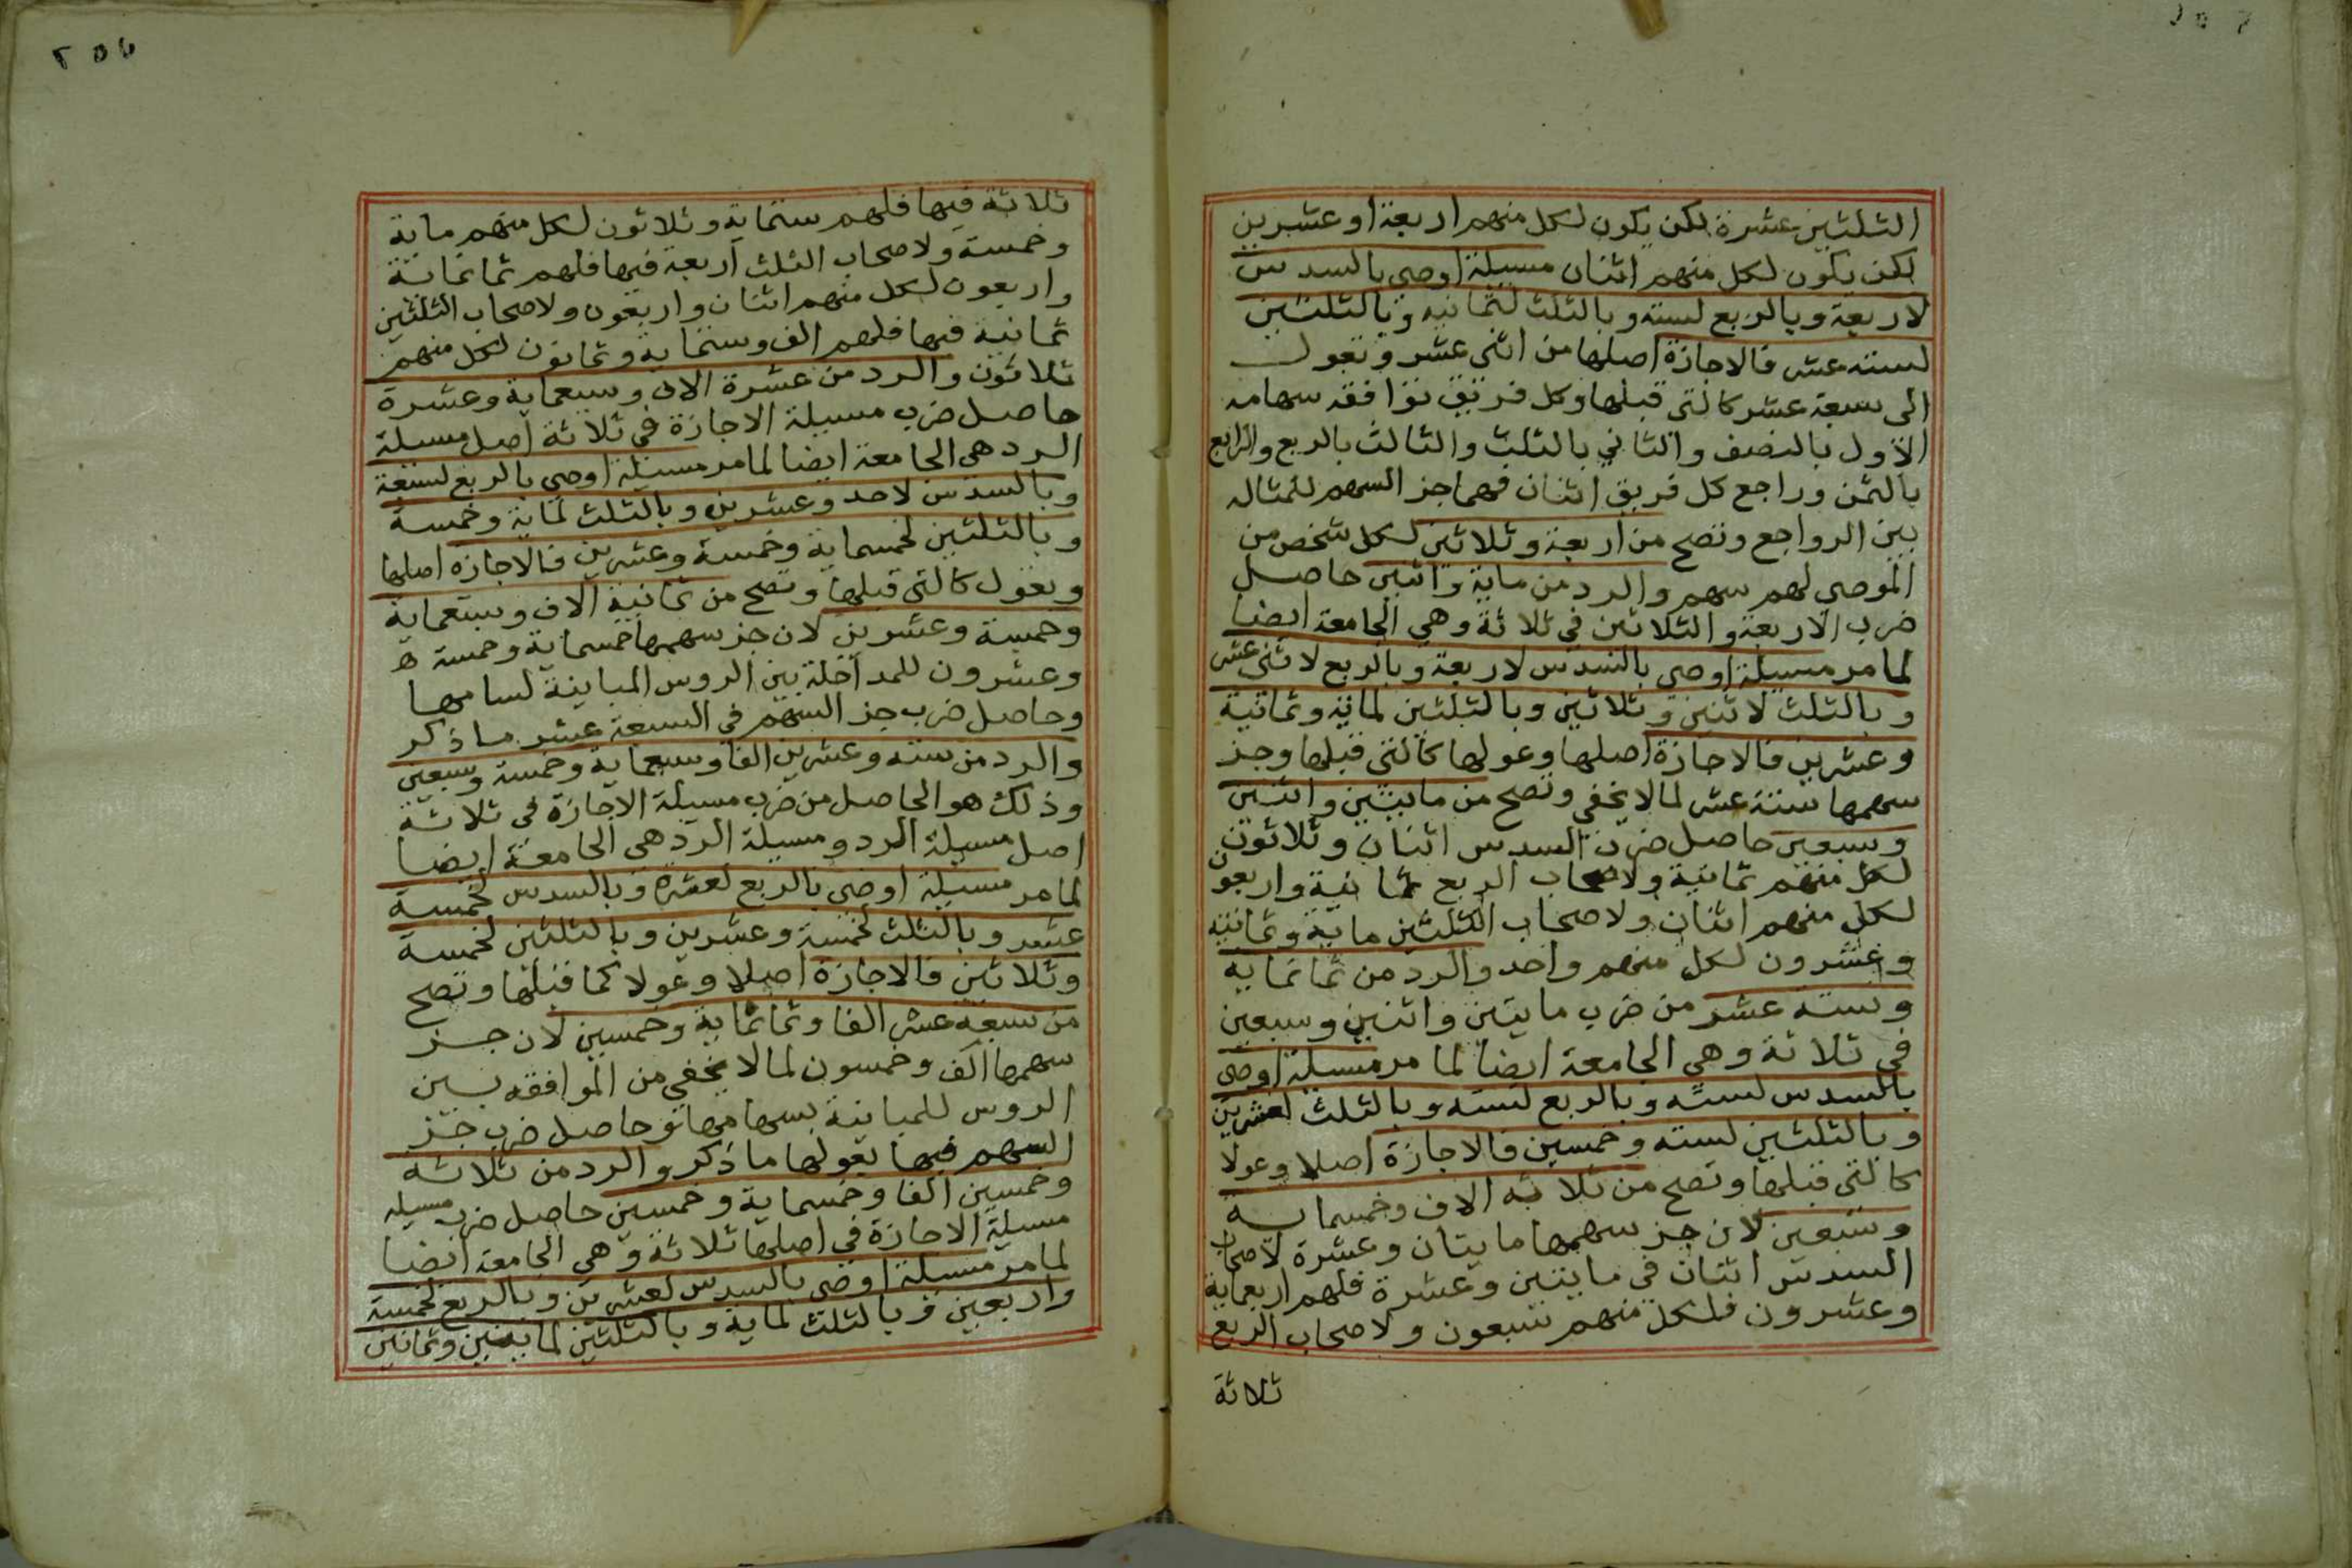 الثلثين عشرة لكن يكون لكل منهم اربعة او عشرين
لكن يكون لكل منهم اثنان مسيلة اوصى بالسدس
لاربعة وبالربع لستة وبالثلث لثمانية وبالثلثين
لستة عشر فالاجازة اصلها من اثنى عشر وتعول
الى سبعة عشر كالتى قبلها وكل فريق توافقه سهامه
الاول بالنصف والثاني بالثلث والثالث بالربع والرابع
بالثمن وراجع كل فريق اثنان فهما جز السهم للمثاله
بين الرواجع وتصح من اربعة وثلاثين لكل شخص من
الموصى لهم سهم والرد من ماية واثنين حاصل
ضرب الاربعة والثلاثين في ثلاثة وهي الجامعة ايضا
لما مر مسيلة اوصى بالسدس لاربعة وبالربع لاثنى عشر
وبالثلث لاثنين وثلاثين وبالثلثين لماية وثمانية
وعشرين فالاجازة اصلها وعولها كالتى قبلها وجز
سهمها ستة عشر لما لا يخفي وتصح من مايتين واثنين
وسبعين حاصل ضرب السدس اثنان وثلاثون
لكل منهم ثمانية ولاصحاب الربع ثمانية واربعون
لكل منهم اثنان ولاصحاب الثلثين ماية وثمانية
وعشرون لكل منهم واحد والرد من ثمانماية
وستة عشر من ضرب مايتين واثنين وسبعين
في ثلاثة وهي الجامعة ايضا لما مر مسيلة اوصى
بالسدس لستة وبالربع لستة وبالثلث لعشرين
وبالثلثين لستة وخمسين فالاجازة اصلا وعولا
كالتى قبلها وتصح من ثلاثة الاف وخمسماية
وسبعين لان جز سهمها مايتان وعشرة لاصحاب
السدس اثنان في مايتين وعشرة فلهم اربعماية
وعشرون فلكل منهم سبعون ولاصحاب الربع
ثلاثة
ثلاثة فيها فلهم ستماية وثلاثون لكل منهم ماية
وخمسة ولاصحاب الثلث اربعة فيها فلهم ثمانماية
واربعون لكل منهم اثنان واربعون ولاصحاب الثلثين
ثمانية فيها فلهم الف وستماية وثمانون لكل منهم
ثلاثون والرد من عشرة الاف وسبعماية وعشرة
حاصل ضرب مسيلة الاجازة في ثلاثة اصل مسيلة
الرد هى الجامعة ايضا لما مر مسيلة اوصى بالربع لسبعة
وبالسدس لاحد وعشرين وبالثلث لماية وخمسة
وبالثلثين لخمسماية وخمسة وعشرين فالاجازة اصلها
وبعول كالتى قبلها وتصح من ثمانية الاف وسبعماية
وخمسة وعشرين لان جز سهمها خمسماية وخمسة
وعشرون للمداخلة بين الروس المباينة لسامها
وحاصل ضرب جز السهم فى السبعة عشر ما ذكر
والرد من ستة وعشرين الفا وسبعماية وخمسة وسبعين
وذلك هو الحاصل من ضرب مسيلة الاجازة فى ثلاثة
اصل مسيلة الرد ومسيلة الرد هى الجامعة ايضا
لما مر مسيلة اوصى بالربع لعشرة وبالسدس لخمسة
عشر وبالثلث لخمسة وعشرين وبالثلثين لخمسة
وثلاثين فالاجازة اصلا وعولا كما قبلها وتصح
من سبعة عشر الفا وثمانماية وخمسين لان جز
سهمها الف وخمسون لما لا يخفي من الموافقه بين
الروس للمباينة بسهامها وحاصل ضرب جز
السهم فيها بعولها ما ذكر والرد من ثلاثة
وخمسين الفا وخمسماية وخمسين حاصل ضرب مسيله
مسيلة الاجازة في اصلها ثلاثة وهي الجامعة ايضا
لما مر مسيلة اوصى بالسدس لعشرين وبالربع لخمسة
واربعين وبالثلث لماية وبالثلثين لمايتين وثمانين